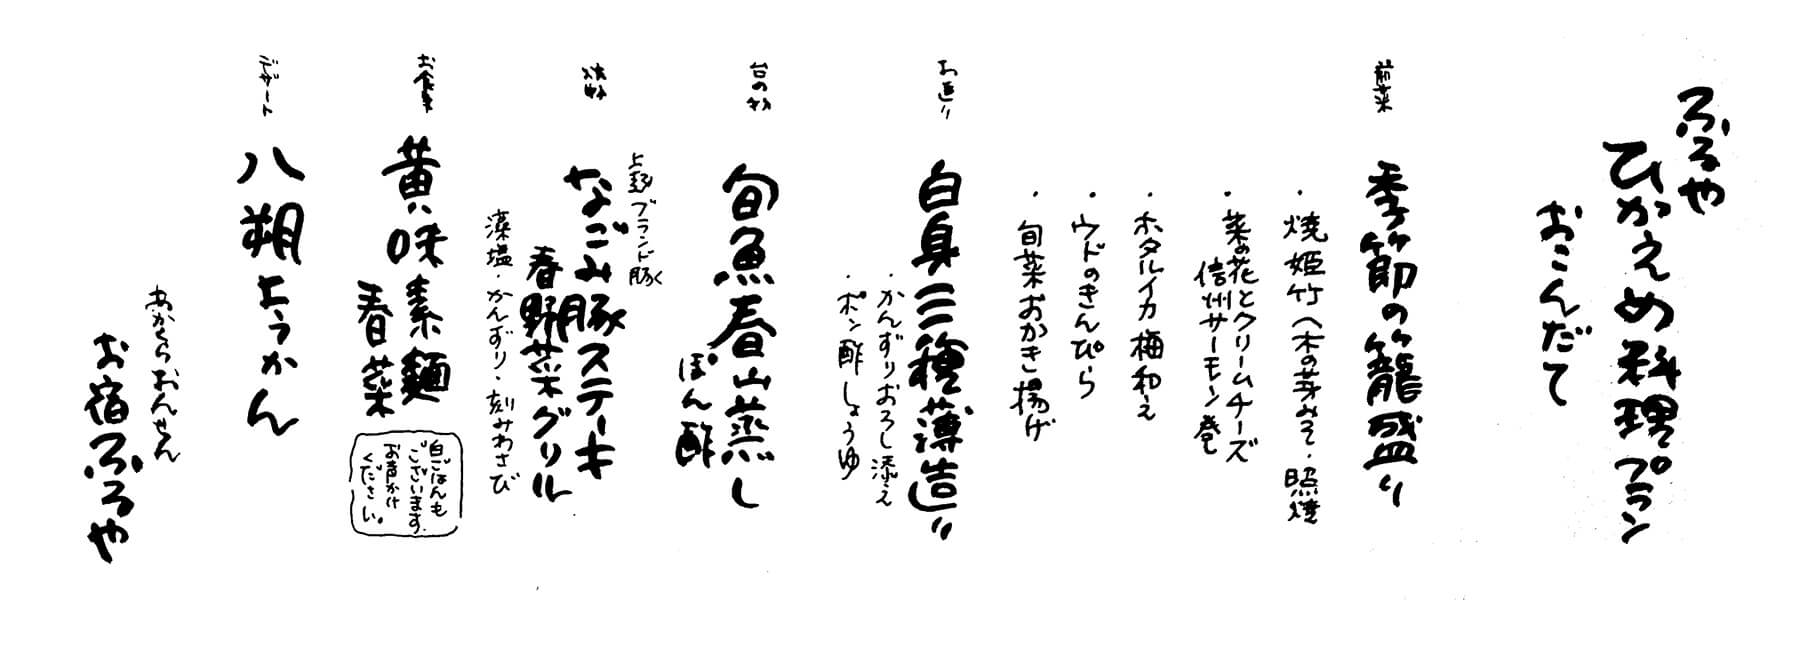 ふるや
ひかえめ料理プラン
おこんだて
前菜
季節の籠盛り
・焼姫竹 木の芽みそ・照焼
・菜の花とクリームチーズ
信州サーモン巻
・ホタルイカ梅和え
・ウドのきんぴら
・旬菜おかき揚げ
お造り
白身三種薄造り
・かんずりおろし添え
・ポン酢しょうゆ
台の物
旬魚春山蒸し
ぽん酢
焼物
上越ブランド豚
なごみ豚ステーキ
春野菜グリル
藻塩・かんずり・刻みわさび
お食事
黄味素麺
春菜
白ごはんも
ございます。
お声かけ
ください。
デザート
八朔ようかん
あかくらおんせん
お宿ふるや